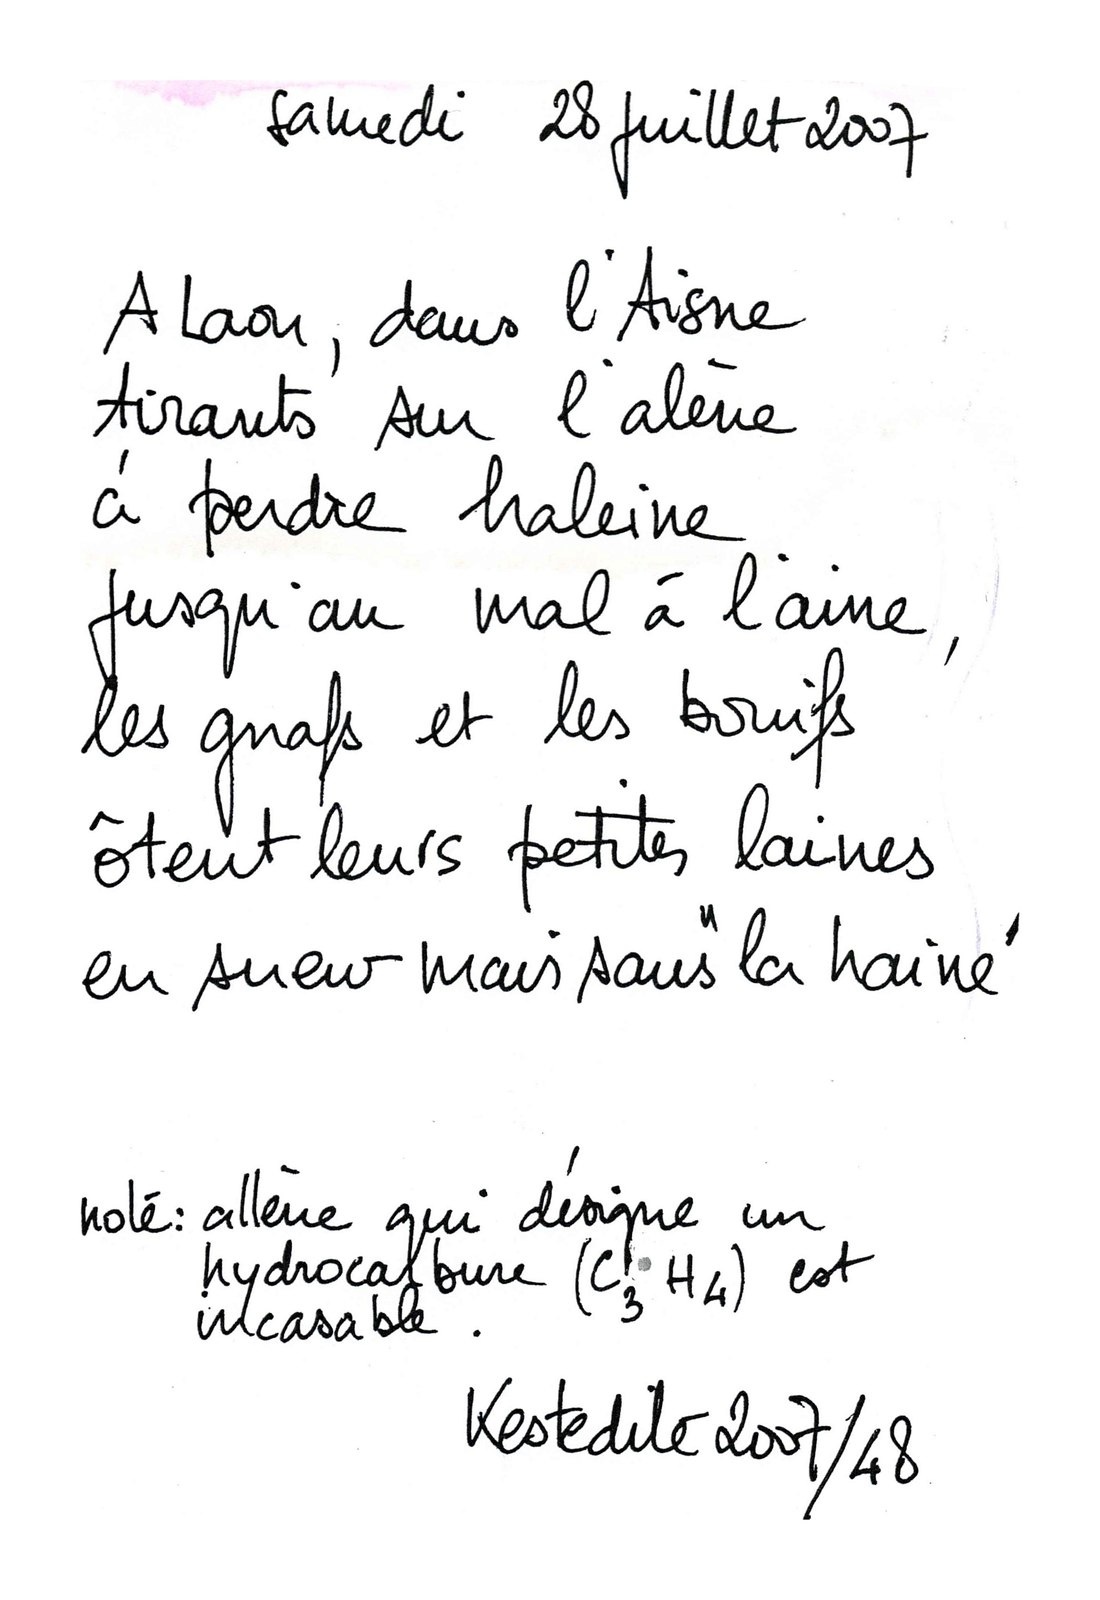 samedi 28 juillet 2007
A Laon, dans l'Aisne
tirants sur l'alène
à perdre haleine
jusqu'au mal à l'aine,
les gnafs et les bouifs
ôtent leurs petites laines
en sueur mais sans "la haine"
note: allène qui désigne un
hydrocarbure (C3 H4) est
incasable.
Kestedité 2007/48